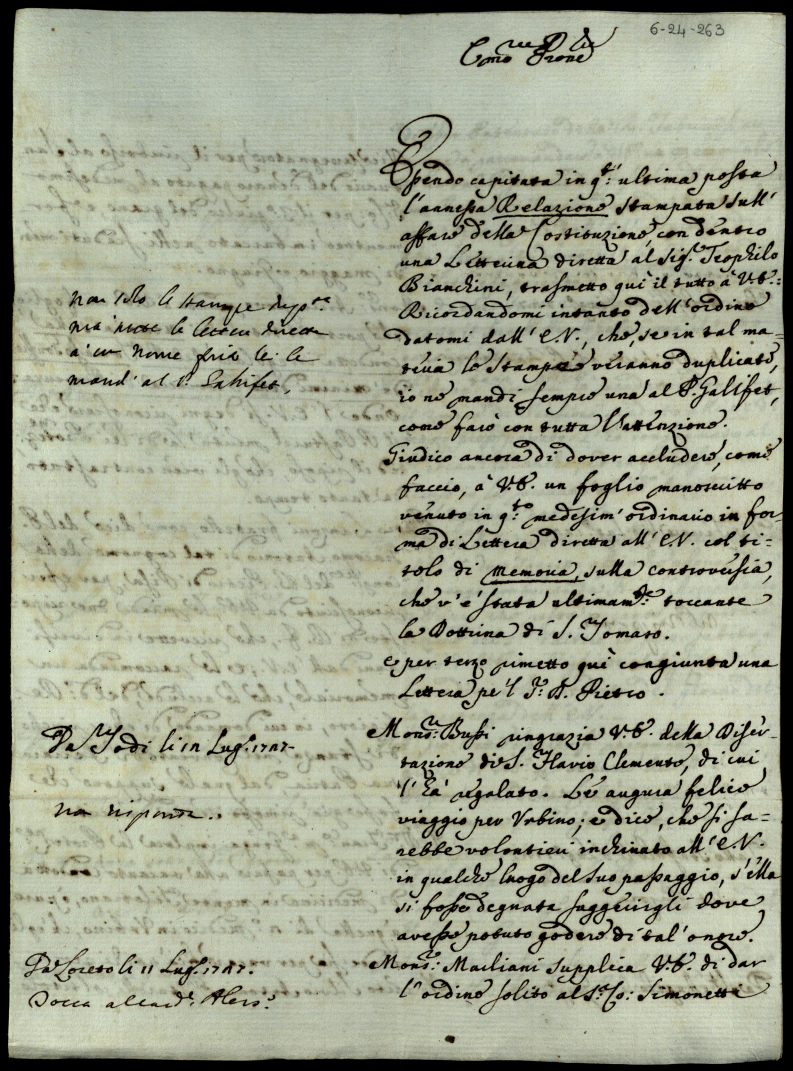 6-24-263
Emo e Rmo Prone
Essendo capitata in q.ta ultima posta
l'annessa Relazione stampata sull'
affare della Costituzione, con dentro
una Letterina diretta al Sig.r Teophilo
Bianchini, trasmetto quì il tutto à V.E.:
Ricordandomi intanto dell'ordine
datomi dall'E.V., che, se in tal ma-
teria le Stampe veranno duplicate,
io ne mandi sempre una al P. Galifet,
come farò con tutta l'attenzione.
non solo le stampe
mà le dirette
a nome le
mand' al P. Galifet,
Giudico ancora di dover accludere, come
faccio, à V.E. un foglio manoscritto
venuto in q.to medesim' ordinario in for-
ma di Lettera diretta all'E.V. col ti-
tolo di Memoria, sulla controversia,
che v'è stata ultimam.te toccante
la Dottrina di S. Tomaso.
E per terzo rimetto quì congiunta una
Lettera pe'l P. Pietro.
Da Todi li Lug.o
Mons.r Bussi ringrazia V.E. della Disser-
tazione di S. Flavio Clemente, di cui
l'hà regalato. Le augura felice
viaggio per Urbino; e dice, che si sa=
rebbe volontieri inchinato all'E.V.
in qualche luogo del Suo passaggio, s'ella
si fosse degnata suggerirgli dove
avesse potuto godere di tal'onore.
non risponde..
Da Loreto li 11 Lug.o
Tocca al Card.
Mons.r Marliani supplica V.E. di dar
l'ordine solito al S.r Co: Simonetti